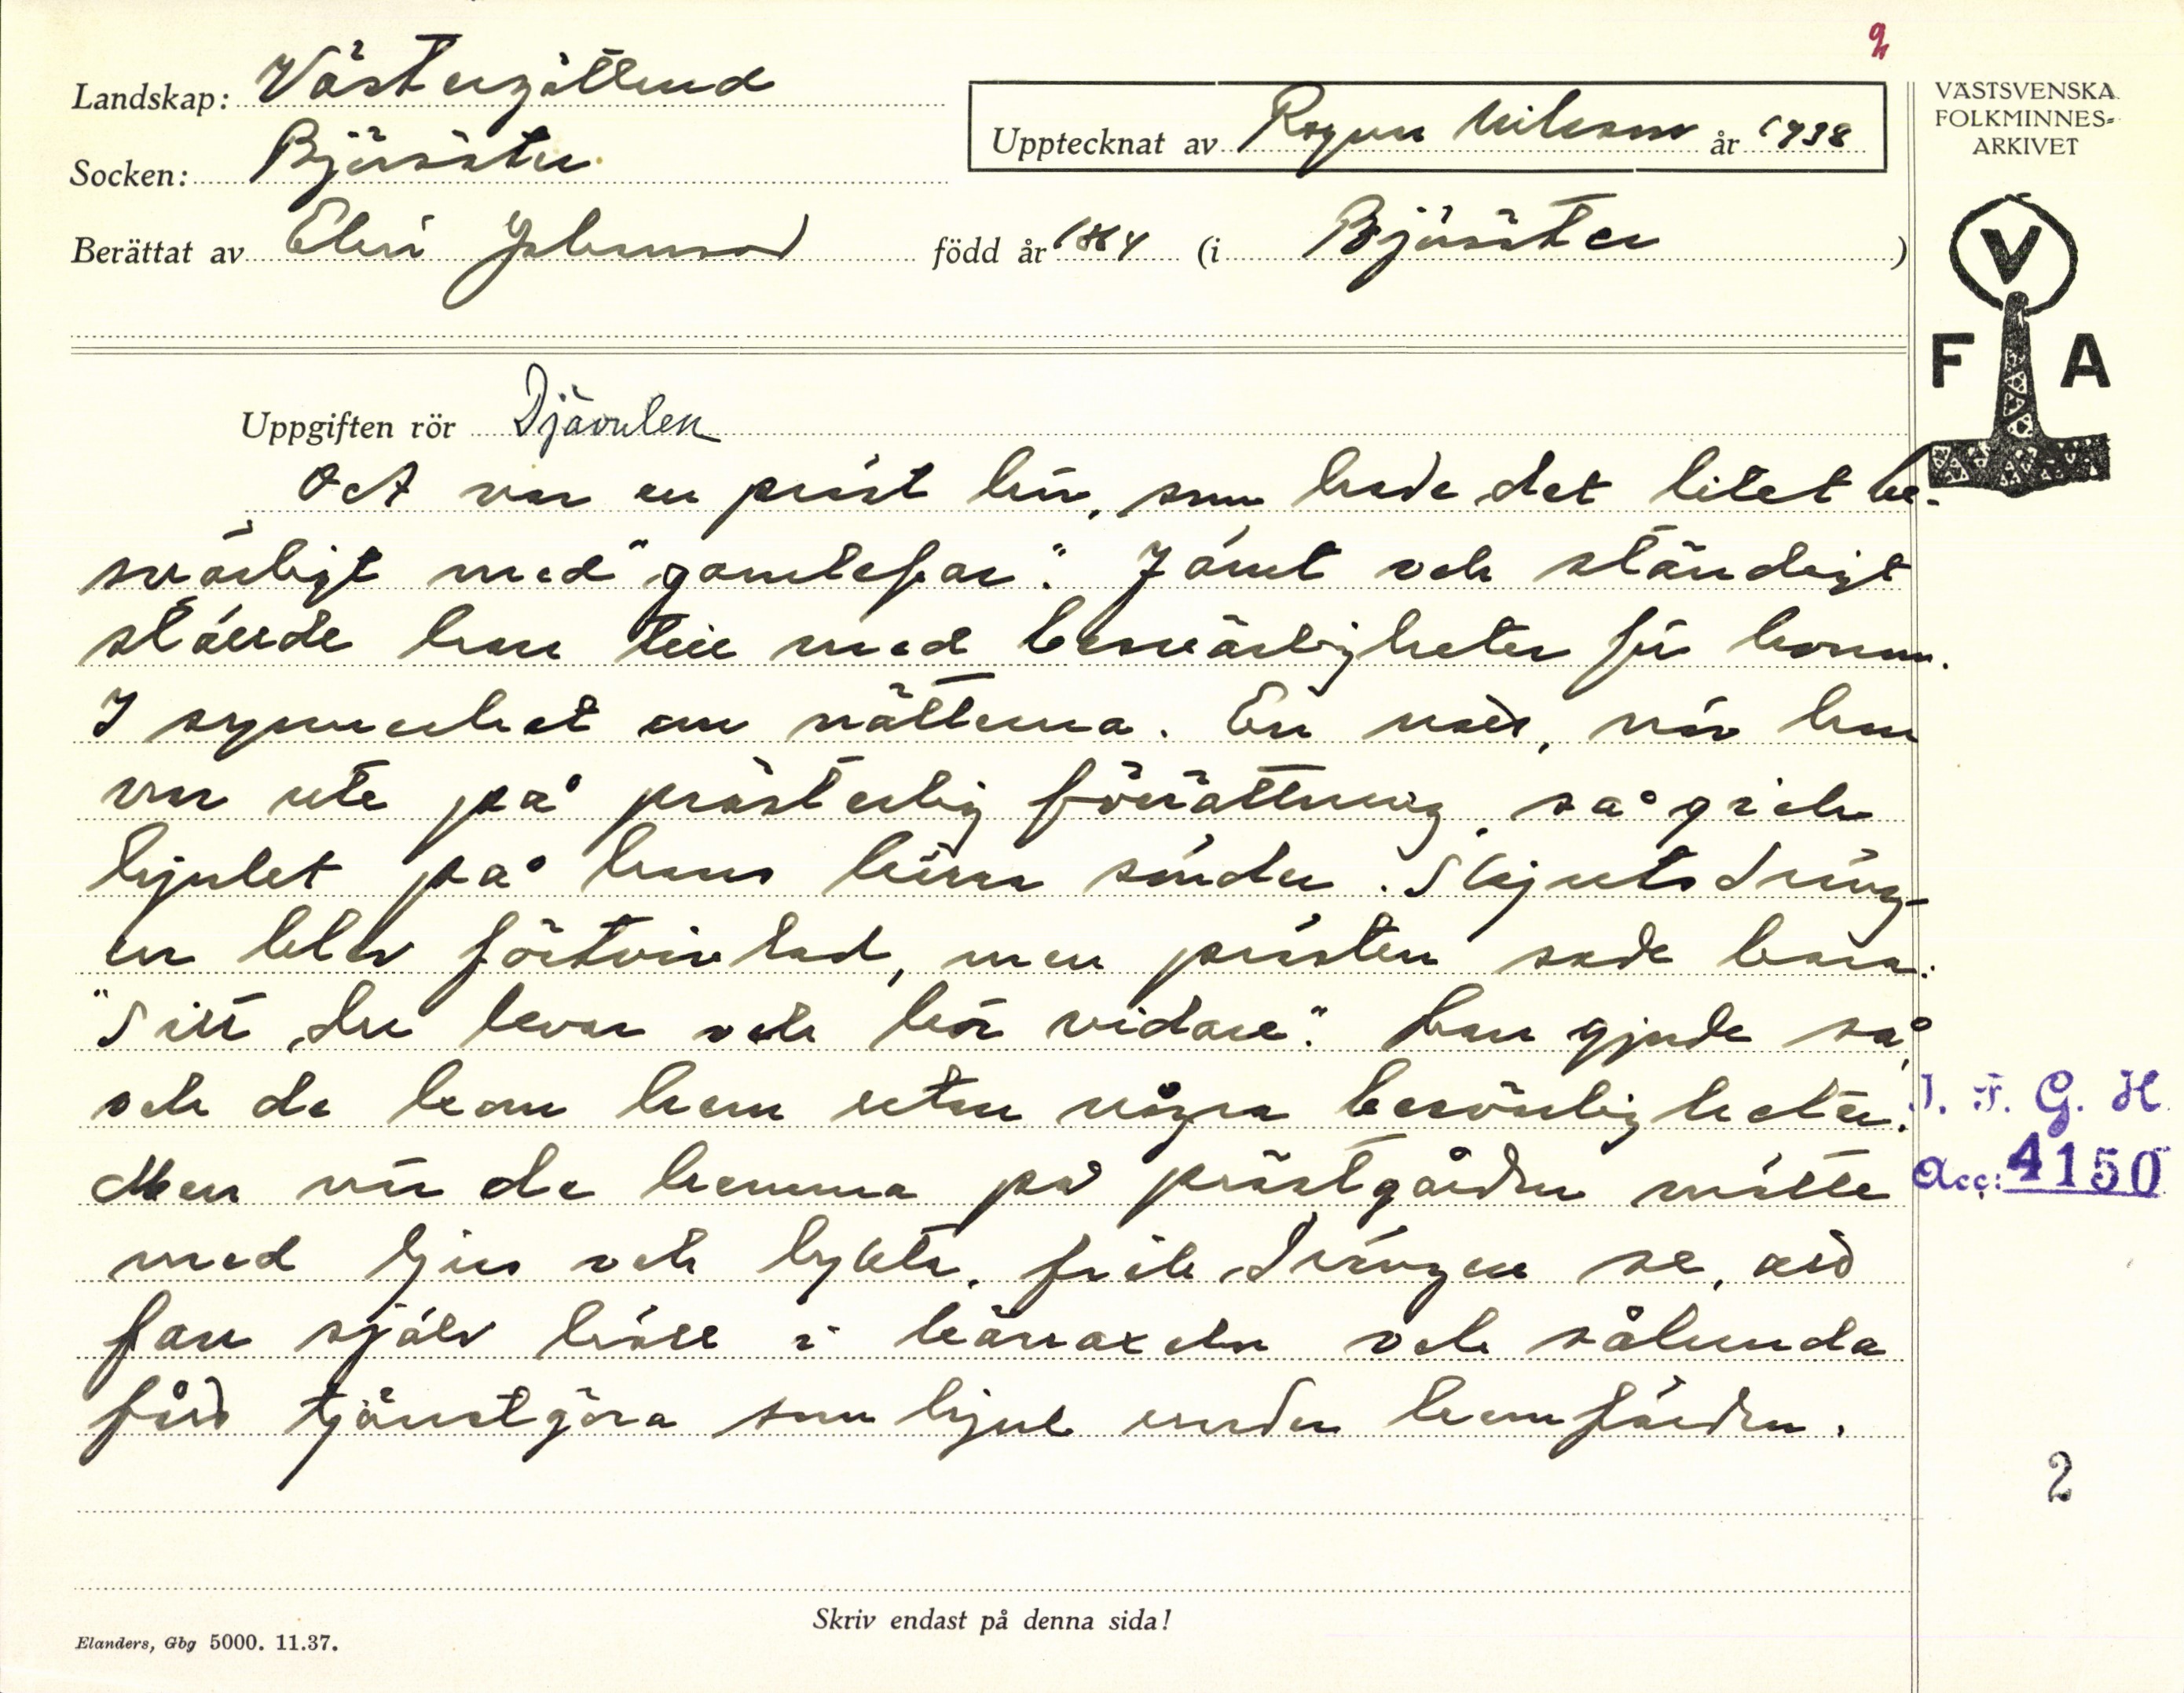 2
Landskap: Västergötland
Socken: Bjärsäter
Upptecknat av Ragnar Nilsson år 1938
Berättat av Elin Johansson född år 1864 (i Bjäräter)
VÄSTSVENSKA
FOLKMINNES-
ARKIVET
V
F A
Uppgiften rör Djävulen
Det var en präst här, som hade det litet be-
svärligt med "gamlefar". Jämt och ständigt
ställde han till med besvärligheter för honom.
I synnerhet om nätterna. En natt, när han
var ute på prästerlig förrättning, så gick
hjulet på hans kärra sönder. Skjutsdräng-
en blev förtvivlad, men prästen sade bara:
"Sitt du bara och kör vidare". Han gjorde så,
och de kom hem utan några besvärligheter.
Men när de hemma på prästgården mötte
med ljus och lykta, fick drängen se, att
fan själv höll i kärraxeln och sålunda
fått tjänstgöra som hjul under hemfärden.
I. F. G. H.
Acc: 4150
2
Skriv endast på denna sida!
Elanders, Gbg 5000. 11.37.